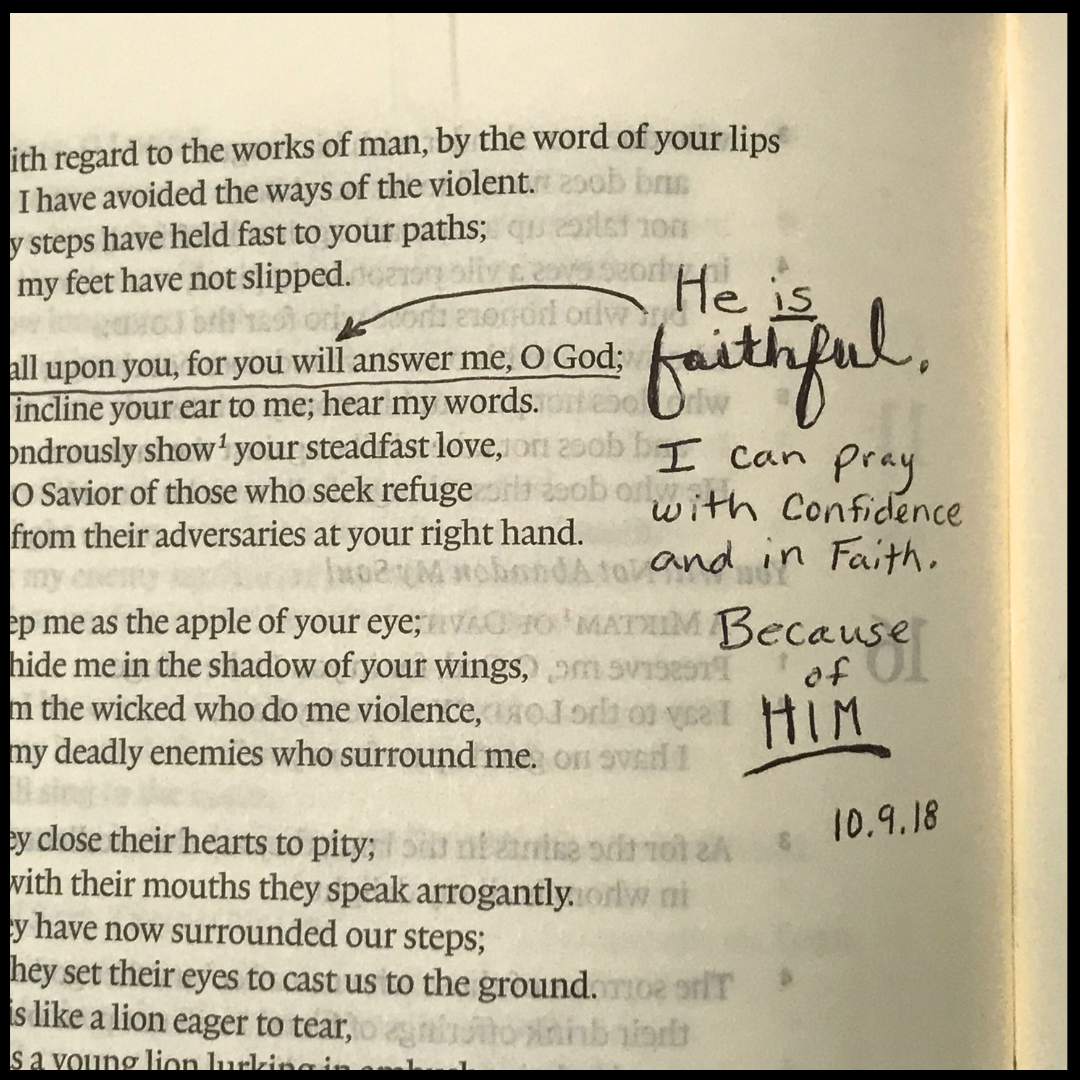 ith regard to the works of man, by the word of your lips
I have avoided the ways of the violent.
y steps have held fast to your paths;
my feet have not slipped.
all upon you, for you will answer me, O God;
incline your ear to me; hear my words.
ondrously show¹ your steadfast love,
O Savior of those who seek refuge
from their adversaries at your right hand.
ep me as the apple of your eye;
hide me in the shadow of your wings,
m the wicked who do me violence,
my deadly enemies who surround me.
ey close their hearts to pity;
with their mouths they speak arrogantly.
ey have now surrounded our steps;
hey set their eyes to cast us to the ground.
is like a lion eager to tear,
s a young lion lurking in
He is
faithful.
I can pray
with Confidence
and in Faith.
Because
of
HIM
10.9.18